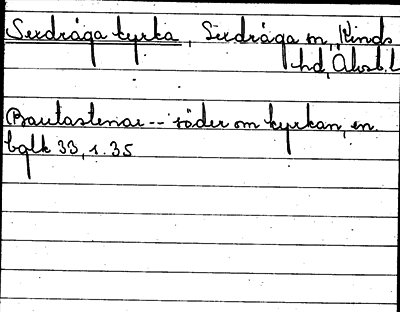 Sexdräga kyrka, Sexdräga sn, Kinds
hd, Älvsb. l.
Bautastenar -- söder om kyrkan, en.
bglk 33, s. 35